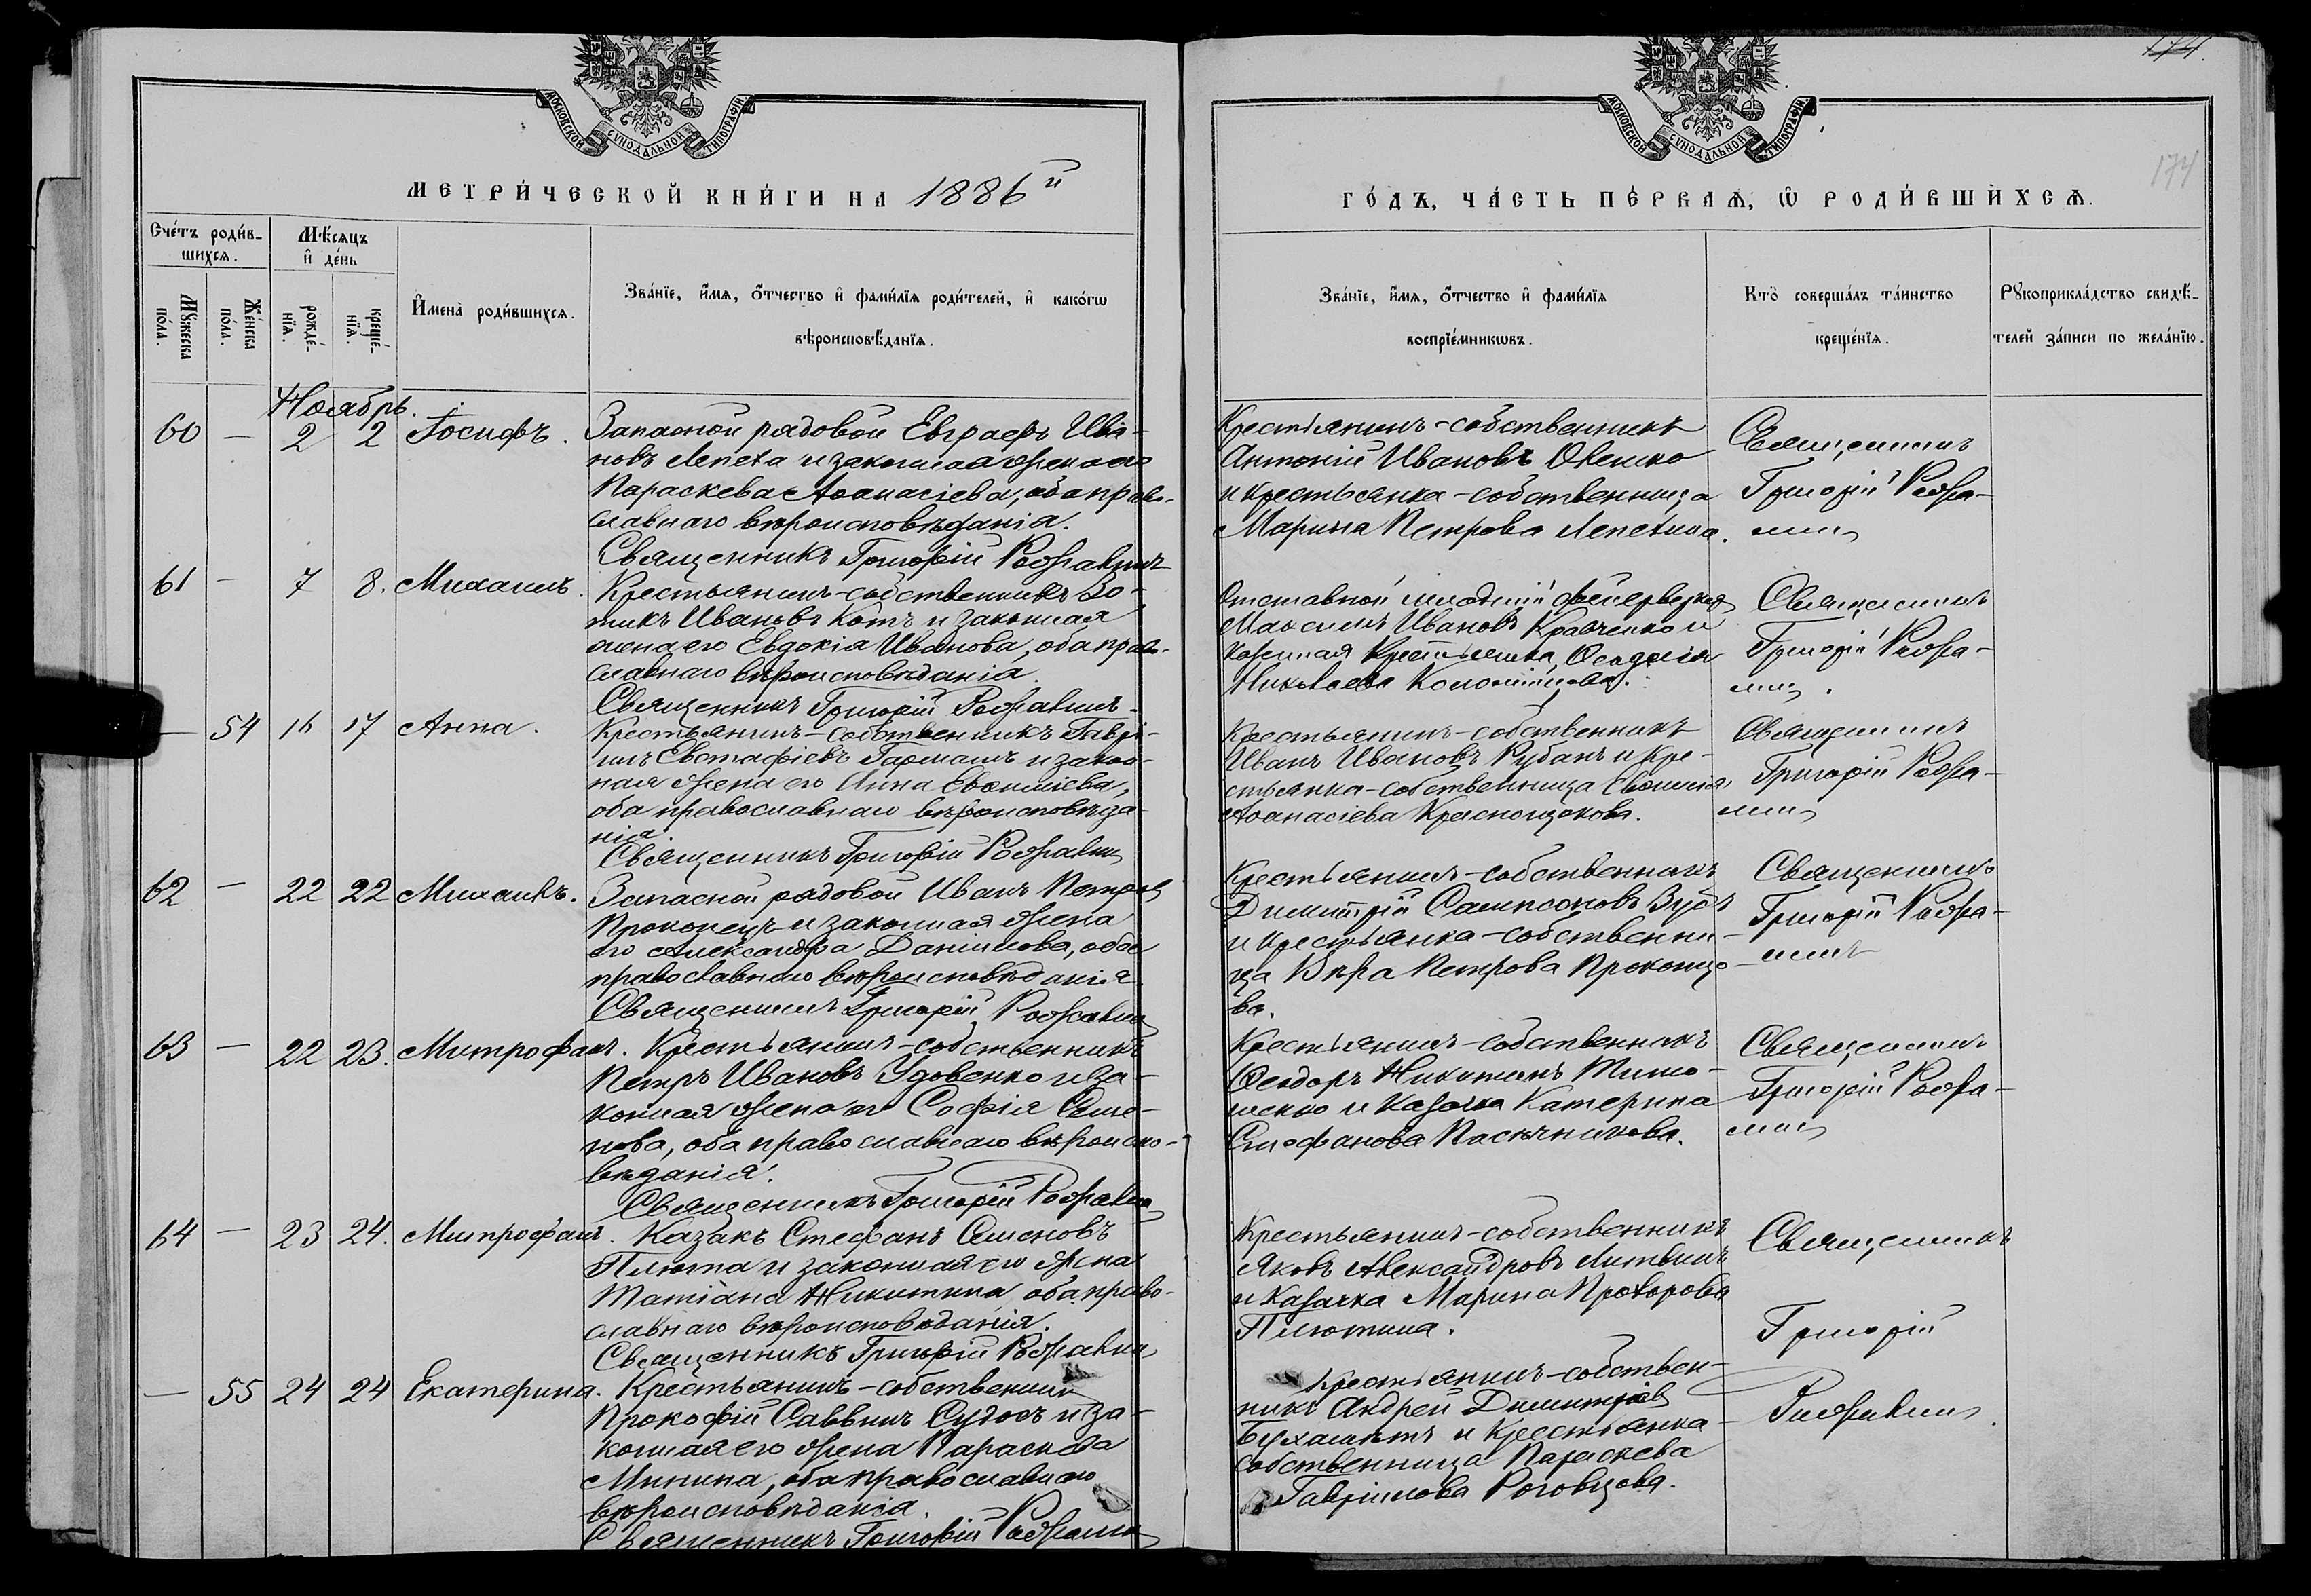 174.
174
МОСКОВСКОЙ СѴНОДАЛЬНОЙ ТИПОГРАФІИ
МОСКОВСКОЙ СѴНОДАЛЬНОЙ ТИПОГРАФІИ
МЕТРИ́ЧЕСКОЙ КНИ́ГИ НА 1886й
ГО́ДЪ, ЧА́СТЬ ПЕ́РВАѦ, Ѡ РОДИ́ВШИХСѦ.
Сче́тъ роди́в-
шихсѧ.
Мꙋ́жеска
по́ла.
Же́нска
по́ла.
Мѣ́сѧцъ
и҆ де́нь
рожде́-
нїѧ.
креще́-
нїѧ.
И҆мена̀ роди́вшихсѧ.
Зва́нїе, и҆́мѧ, ѻ҆́тчество и҆ фами́лїѧ роди́телей, и҆ како́гѡ
вѣроисповѣ́данїѧ.
Зва́нїе, и҆́мѧ, ѻ҆́тчество и҆ фами́лїѧ
воспрїе́мникѡвъ.
Кто̀ соверша́лъ та́инство
креще́нїѧ.
Рꙋкоприкла́дство свидѣ́-
телей за́писи по жела́нїю.
Ноябрь.
60 — 2 2 Іосифъ.
Запасной рядовой Евграфъ Ива-
новъ Лепета и законная жена его
Параскева Аѳанасіева, оба право-
славнаго вѣроисповѣданія.
Священникъ Григорій
Крестьянинъ-собственникъ
Антоній Ивановъ
и крестьянка-собственница
Марина Петрова Лепетина.
Священникъ
Григорій
61 — 7 8. Михаилъ.
Крестьянинъ-собственникъ Зо-
тикъ Ивановъ Котъ и законная
жена его Евдокія Иванова, оба прав-
славнаго вѣроисповѣданія.
Священникъ Григорій
Отставной младшій фейерверкеръ
Максимъ Ивановъ Кравченко и
крестьянка
Николаева
Священникъ
Григорій
— 54 16 17 Анна.
Крестьянинъ-собственникъ Гаврі-
илъ Евстафіевъ Гармашъ и закон-
ная жена его Анна Евѳиміева,
оба православнаго вѣроисповѣда-
нія.
Священникъ Григорій
Крестьянинъ-собственникъ
Иванъ Ивановъ Рубанъ и кре-
стьянка-собственница Евѳимія
Аѳанасіева Краснощокова.
Священникъ
Григорій
62 — 22 22 Михаилъ.
Запасной рядовой Иванъ Петровъ
Прокопецъ и законная жена
его Александра Даніилова, оба
православнаго вѣроисповѣданія.
Священникъ Григорій
Крестьянинъ-собственникъ
Димитрій Сампсоновъ Зубъ
и крестьянка-собственни-
ца Вѣра Петрова Прокопцо-
ва.
Священникъ
Григорій
63 — 22 23. Митрофанъ.
Крестьянинъ-собственникъ
Петръ Ивановъ Удовенко и за-
конная жена его Софія Симо-
нова, оба православнаго вѣроиспо-
вѣданія.
Священникъ Григорій
Крестьянинъ-собственникъ
Ѳеодоръ Никитинъ Тимо-
шенко и казачка Катерина
Стефанова Пасѣчникова.
Священникъ
Григорій
64 — 23 24. Митрофанъ.
Казакъ Стефанъ Симоновъ
Плюта и законная его жена
Татіана Никитина оба право-
славнаго вѣроисповѣданія.
Священникъ Григорій
Крестьянинъ-собственникъ
Яковъ Александровъ Литвинъ
и казачка Марина Прохорова
Плютина.
Священникъ
Григорій
— 55 24 24 Екатерина.
Крестьянинъ-собственникъ
Прокофій Саввинъ Судосъ и за-
конная его жена Параскева
Минина, оба православнаго
вѣроисповѣданія.
Священникъ Григорій
Крестьянинъ-собствен-
никъ Андрей Димитріевъ
и крестьянка
собственница Параскева
Гавріилова Роговцова.